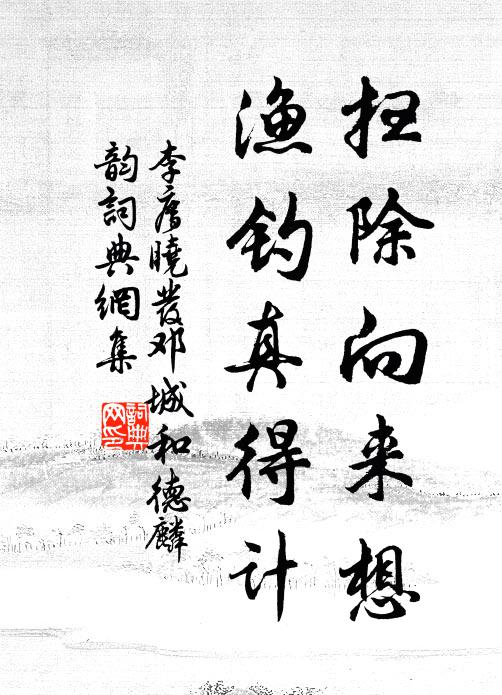 扫除向来想
渔钓真得计
李廌晓发邓城和德麟
韵词典网集
詞典
网印